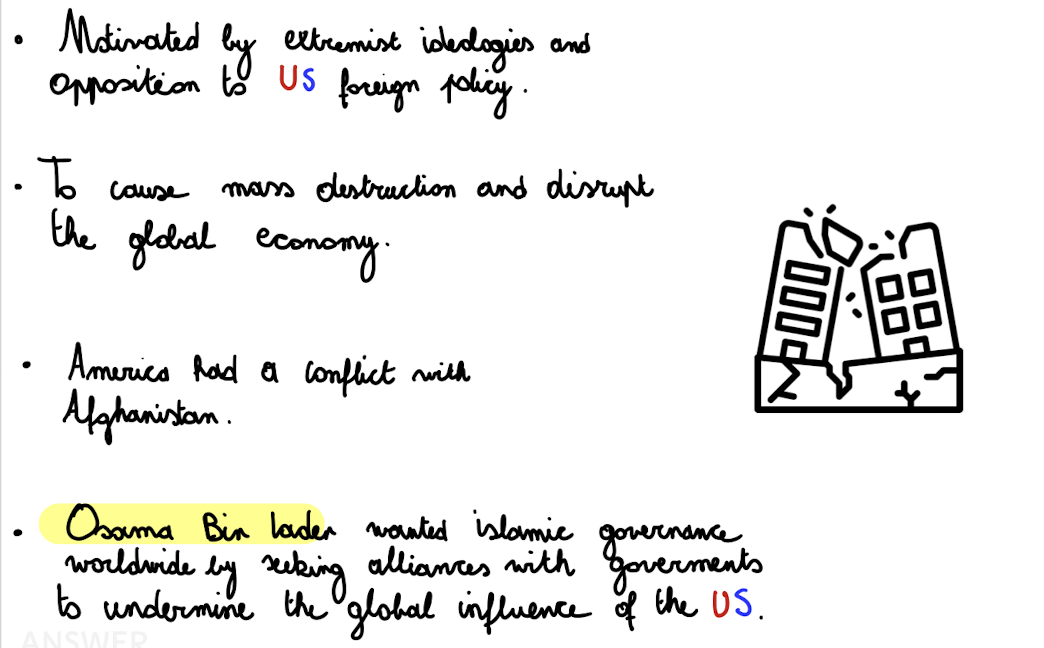 • Motivated by extremist ideologies and
opposition to US foreign policy.
• To cause mass destruction and disrupt
the global economy.
• America had a conflict with
Afghanistan.
• Osama Bin laden wanted islamic governance
worldwide by seeking alliances with goverments
to undermine the global influence of the US.
ANSWER